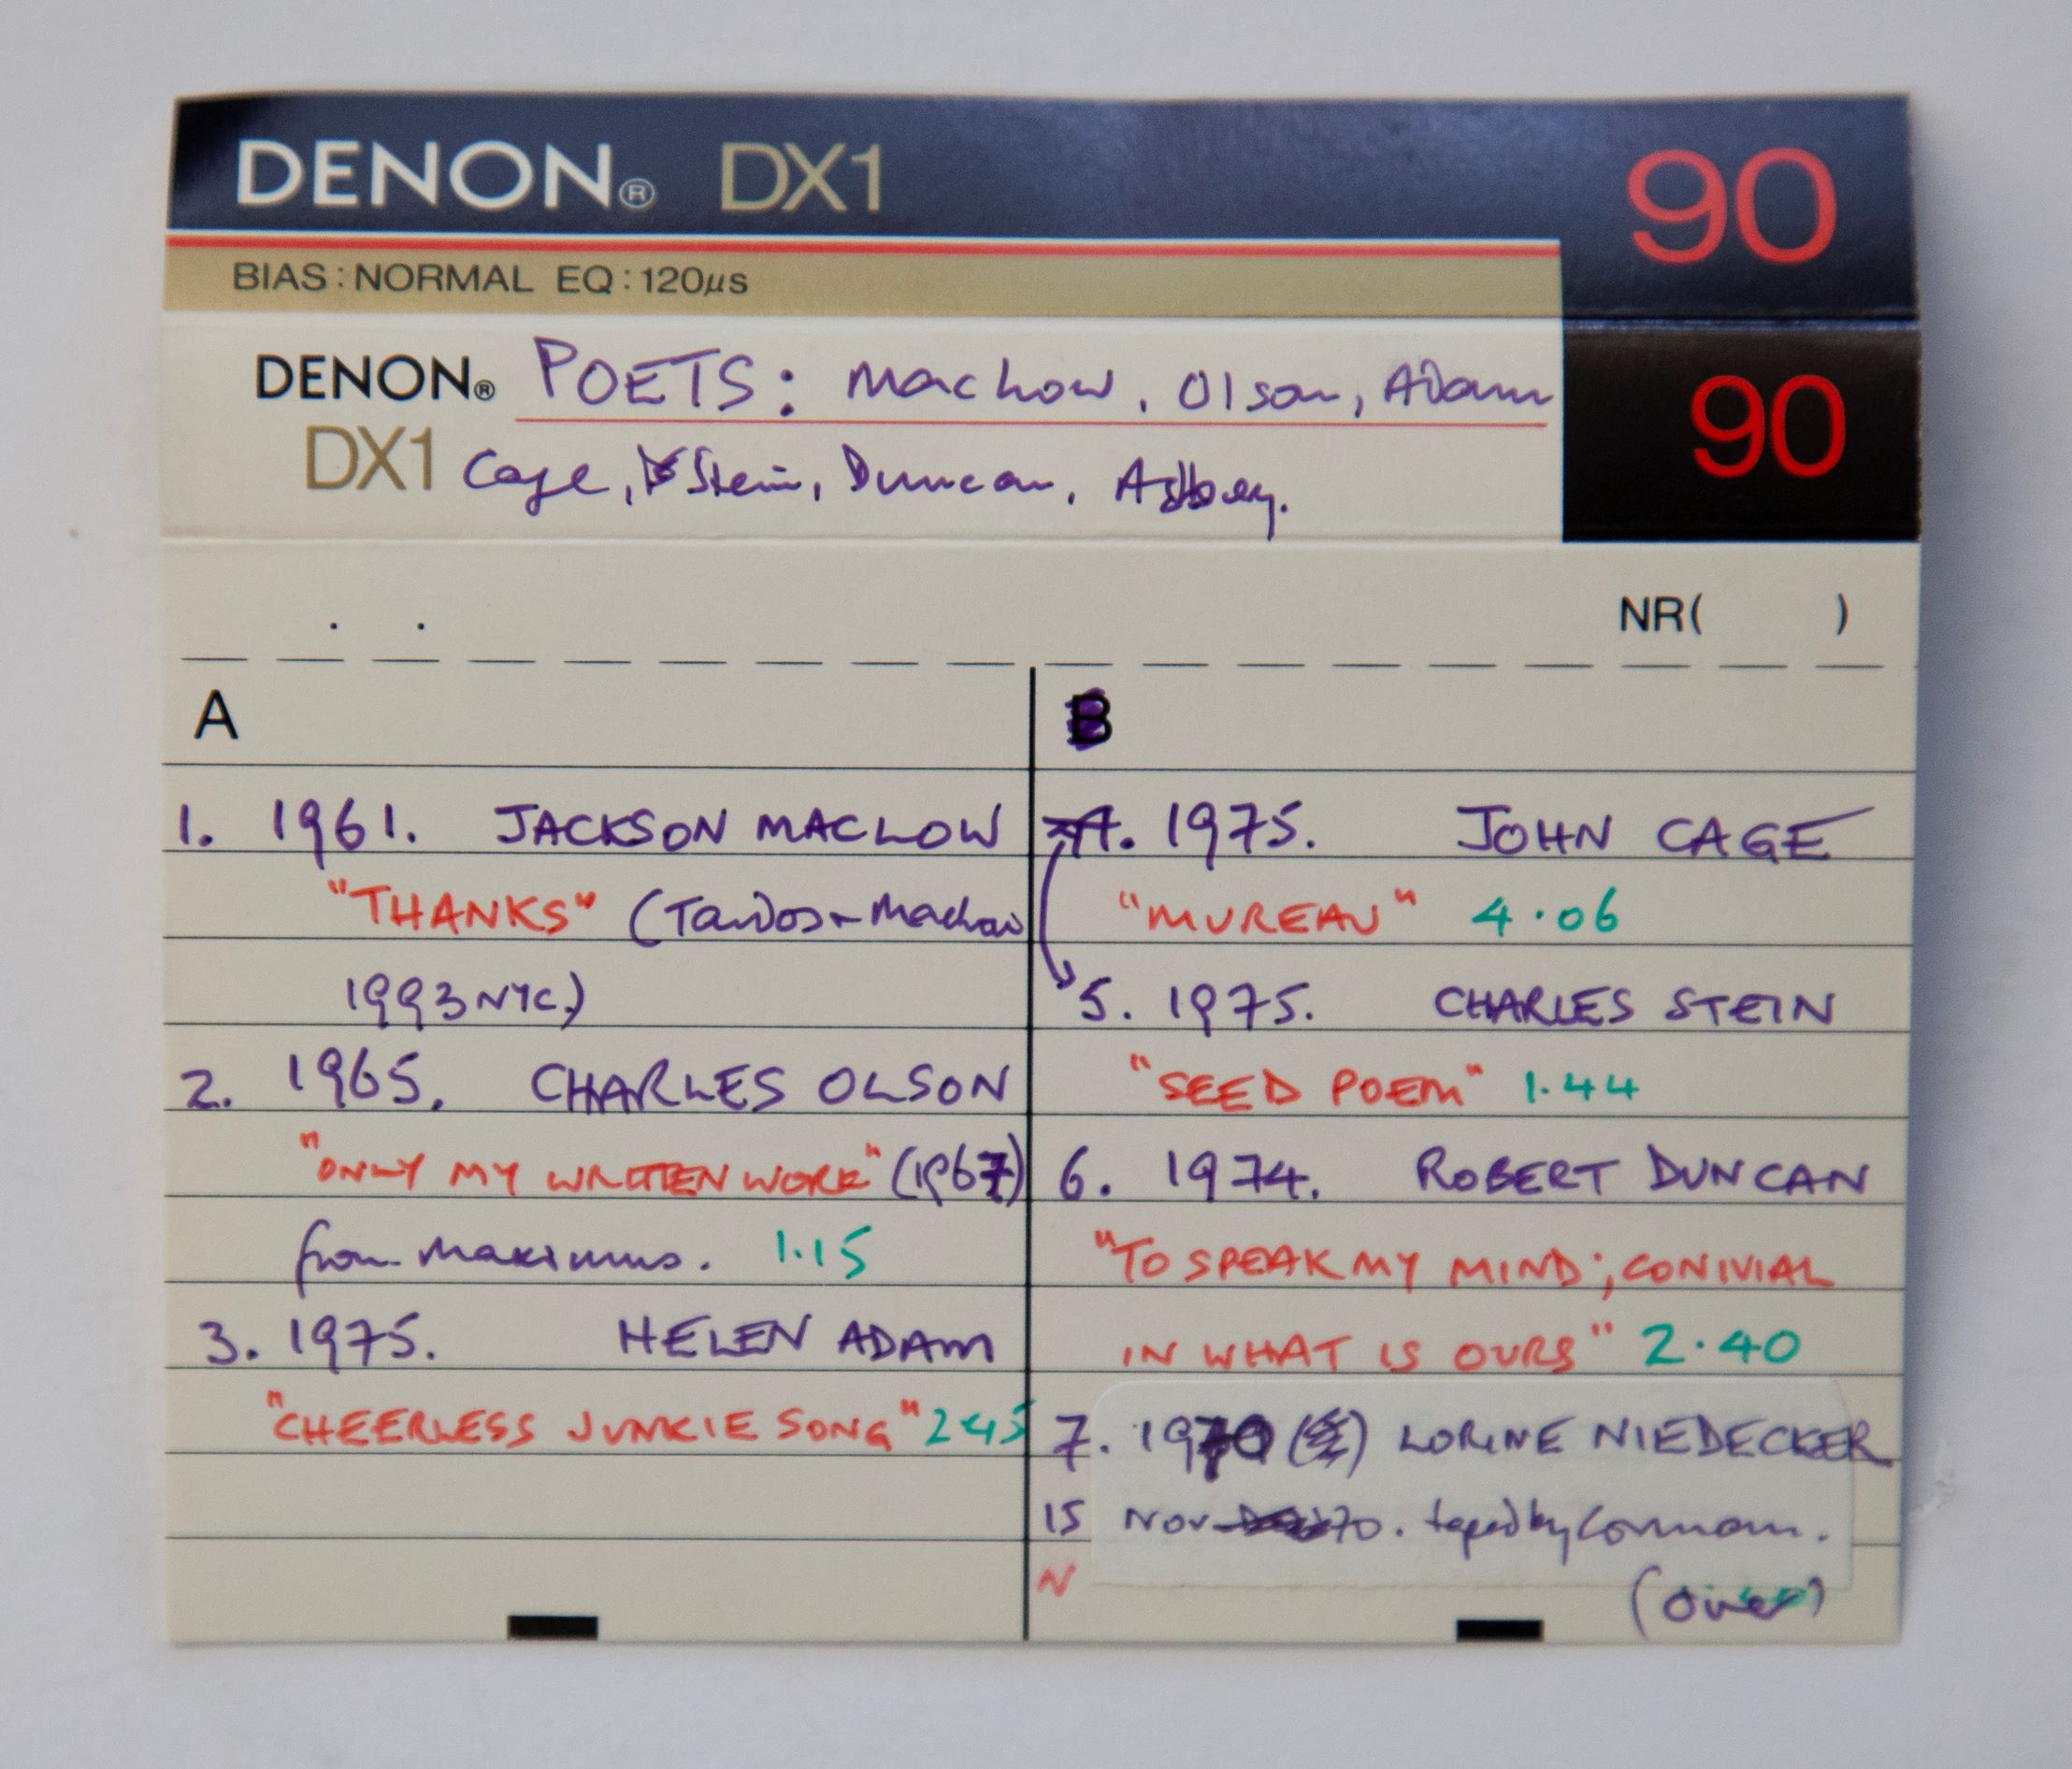 DENON® DX1 90
BIAS:NORMAL EQ:120µs
DENON® POETS: Maclow, Olson, Adam 90
DX1 Cage, Stein, Duncan, Ashbery.
NR( )
A
1. 1961. JACKSON MACLOW
"THANKS" (Tardos + Maclow
1993 NYC.)
2. 1965. CHARLES OLSON
"ONLY MY WRITTEN WORK" (1967)
from Maximus. 1.15
3. 1975. HELEN ADAM
"CHEERLESS JUNKIE SONG" 2.45
B
4. 1975. JOHN CAGE
"MUREAU" 4.06
5. 1975. CHARLES STEIN
"SEED POEM" 1.44
6. 1974. ROBERT DUNCAN
"TO SPEAK MY MIND; CONIVIAL
IN WHAT IS OURS" 2.40
7. 1970 LORINE NIEDECKER
15 Nov 70. taped by Corman.
N
(over)